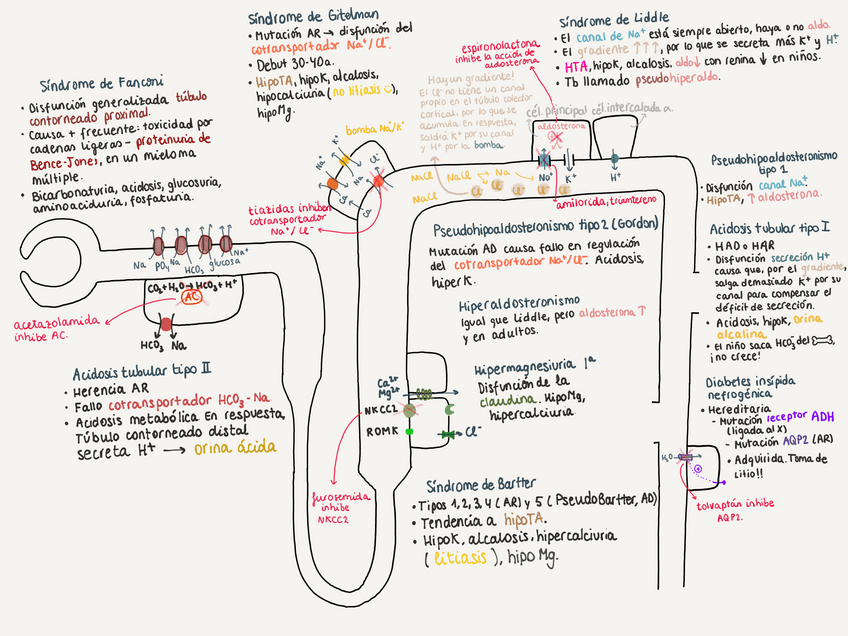 Síndrome de Fanconi
• Disfunción generalizada túbulo
contorneado proximal.
• Causa + frecuente: toxicidad por
cadenas ligeras - proteinuria de
Bence-Jones, en un mieloma
múltiple.
• Bicarbonaturia, acidosis, glucosuria,
aminoaciduria, fosfaturia.
Síndrome de Gitelman
• Mutación AR → disfunción del
cotransportador Na⁺/Cl⁻.
• Debut 30-40a.
• HipoTA, hipoK, alcalosis,
hipocalciuria (no litiasis ),
hipoMg.
bomba Na⁺/K⁺
Na⁺
K⁺
Cl⁻
Na
tiazidas inhiben
cotransportador
Na⁺/Cl⁻
Hay un gradiente!
El Cl⁻ no tiene un canal
propio en el túbulo colector
cortical, por lo que se
acumula. En respuesta,
saldrá K⁺ por su canal
y H⁺ por la bomba.
espironolactona
inhibe la acción de
aldosterona
Síndrome de Liddle
• El canal de Na⁺ está siempre abierto, haya o no aldo.
• El gradiente ↑↑↑, por lo que se secreta más K⁺ y H⁺.
• HTA, hipoK, alcalosis. aldo↓ con renina ↓ en niños.
• Tb llamado pseudohiperaldo.
cél. principal cél. intercalada a.
aldosterona
NaCl
NaCl
NaCl
Na
Cl⁻ Cl⁻ Cl⁻ Cl⁻ Cl⁻
Na⁺
K⁺
H⁺
amilorida, triamtereno
Pseudohipoaldosteronismo
tipo 1
• Disfunción canal Na⁺.
• HipoTA, ↑ aldosterona.
Acidosis tubular tipo I
• HAD o HAR
• Disfunción secreción H⁺
causa que, por el gradiente,
salga demasiado K⁺ por su
canal para compensar el
déficit de secreción.
• Acidosis, hipoK, orina
alcalina
• El niño saca HCO₃⁻ del
¡no crece!
Diabetes insípida
nefrogénica
• Hereditaria
- Mutación receptor ADH
(ligada al X)
- Mutación AQP2 (AR)
• Adquirida. Toma de
litio!!
H₂O
tolvaptán inhibe
AQP2.
Pseudohipoaldosteronismo tipo 2 (Gordon)
Mutación AD causa fallo en regulación
del cotransportador Na⁺/Cl⁻. Acidosis,
hiperK.
Hiperaldosteronismo
Igual que Liddle, pero aldosterona ↑
y en adultos.
Hipermagnesiuria 1ª
Disfunción de la
claudina. HipoMg,
hipercalciuria
Ca²⁺
Mg²⁺
NKCC2
ROMK
Cl⁻
furosemida
inhibe
NKCC2
Síndrome de Bartter
• Tipos 1, 2, 3, 4 (AR) y 5 (PseudoBartter, AD)
• Tendencia a hipoTA.
• HipoK, alcalosis, hipercalciuria
(litiasis), hipoMg.
Na PO₄ Na HCO₃ glucosa Na⁺
CO₂+H₂O→HCO₃+H⁺
AC
HCO₃ Na
acetazolamida
inhibe AC.
Acidosis tubular tipo II
• Herencia AR
• Fallo cotransportador HCO₃-Na
• Acidosis metabólica. En respuesta,
Túbulo contorneado distal
secreta H⁺ → orina ácida